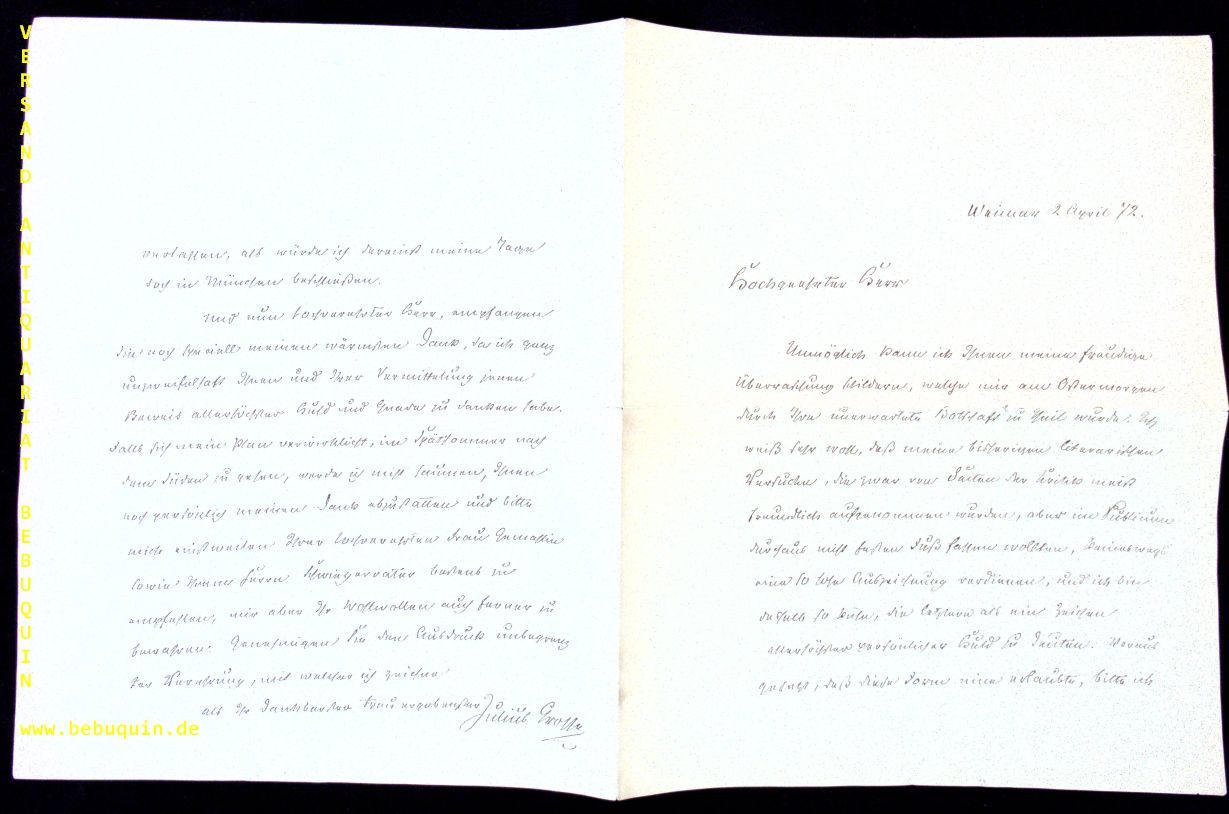 Weimar 2 April 72.
Hochgeehrter Herr
Unmöglich kann ich Ihnen meine freudige
Überraschung schildern, welche mir am Ostermorgen
durch Ihre unerwartete Botschaft zu Theil wurde. Ich
weiß sehr wohl, daß meine bisherigen literarischen
Versuche, die zwar von Seiten der Kritik meist
freundlich aufgenommen wurden, aber im Publicum
durchaus nicht festen Fuß fassen wollten, keineswegs
eine so hohe Auszeichnung verdienen, und ich bin
deshalb so kühn, die letztere als ein Zeichen
allerhöchster persönlicher Huld zu deuten. Voraus
gesetzt, daß diese Form eine erlaubte, bitte ich
verlassen, als würde ich dereinst meine Tage
doch in München beschließen.
Und nun hochverehrter Herr, empfangen
Sie noch speciell meinen wärmsten Dank, da ich ganz
unzweifelhaft Ihnen und Ihrer Vermittelung jenen
Beweis allerhöchster Huld und Gnade zu danken habe.
Falls sich mein Plan verwirklicht, im Spätsommer nach
dem Süden zu gehen, werde ich nicht säumen, Ihnen
noch persönlich meinen Dank abzustatten und bitte
mich einstweilen Ihrer hochverehrten Frau Gemahlin
sowie Ihrem Herrn Schwiegervater bestens zu
empfehlen, mir aber Ihr Wohlwollen auch ferner zu
bewahren. Genehmigen Sie den Ausdruck unbegrenz
ter Verehrung, mit welcher ich zeichne
als Ihr dankbarster treu ergebenster Julius Grosse
VERSAND ANTIQUARIAT BEBUQUIN
www.bebuquin.de